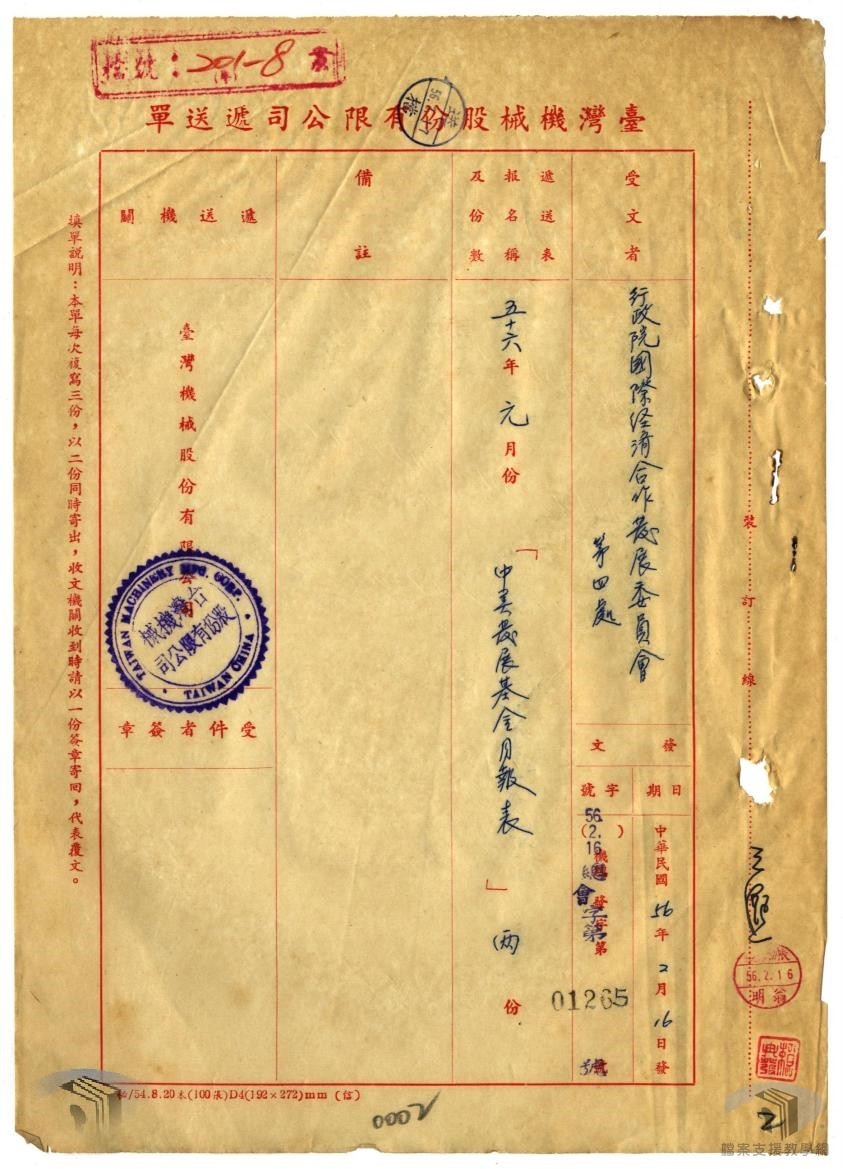 檔號：201-8
臺灣機械股份有限公司遞送單
受文者
行政院國際經済合作發展委員會
第四處
發文
日期
中華民國56年2月16日發
字號
56.2.16
總會字第
01265
號
遞送表報名稱及份數
五十六年元月份「中美發展基金月報表」兩份
備註
遞送機關
臺灣機械股份有限公司
TAIWAN MACHINERY MFG. CORP.
台灣機械股份有限公司
TAIWAN CHINA
受件者簽章
填單說明：本單每次複寫三份，以二份同時寄出，收文機關收到時請以一份簽章寄回，代表覆文。
裝訂線
56.2.16
/54.8.20本(100張)D4(192×272)mm (信)
2000
2
檔案支援教學網